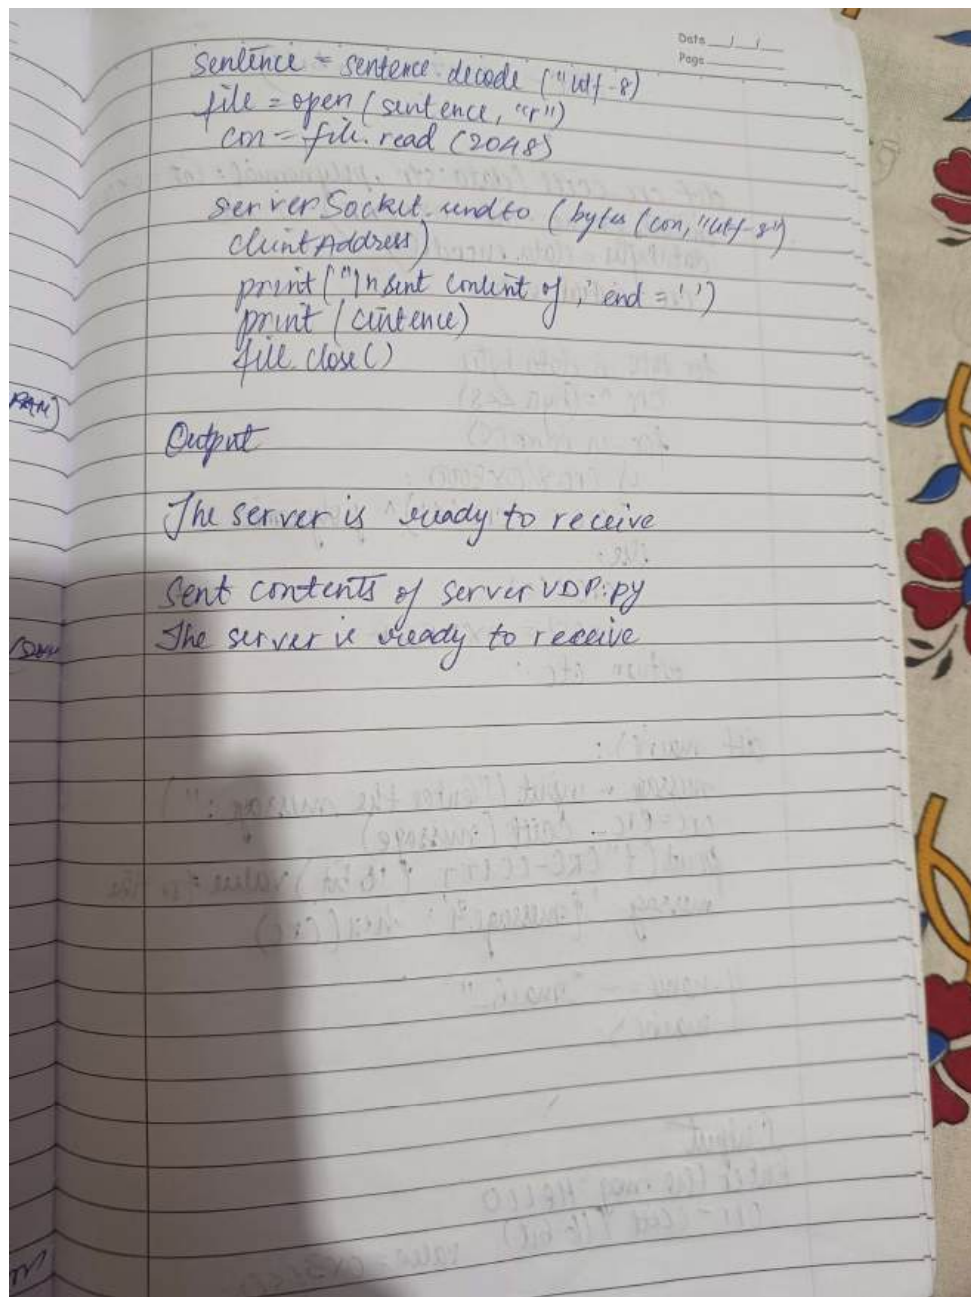 Date
Page
sentence = sentence.decode ("utf-8)
file = open (sentence, "r")
con = file.read (2048)
serverSocket.sendto (bytes (con, "utf-8")
clientAddress)
print ("\n sent content of, end = ' ')
print (centence)
file.close()
Output
The server is ready to receive
Sent contents of server UDP.py
The server is ready to receive